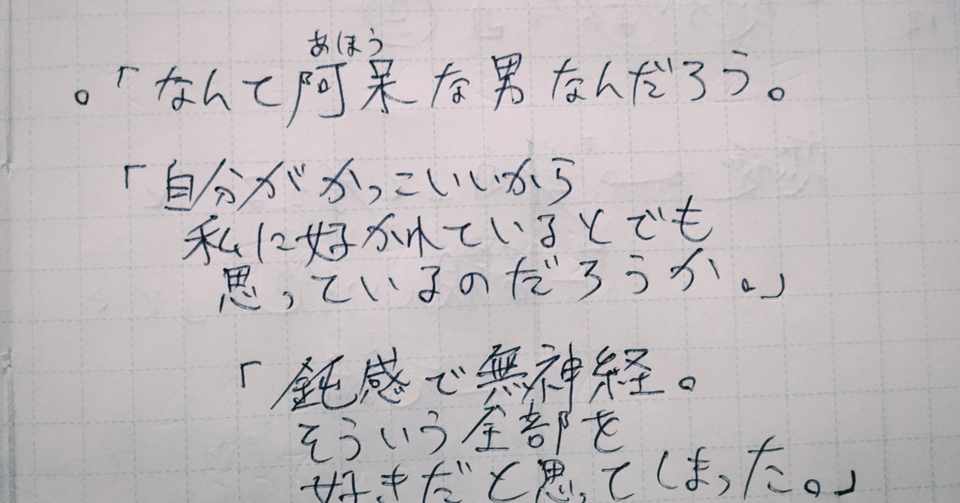 あほう
。「なんて阿呆な男なんだろう。
「自分がかっこいいから
私に好かれているとでも
思っているのだろうか。」
「鈍感で無神経。
そういう全部を
好きだと思ってしまった。」